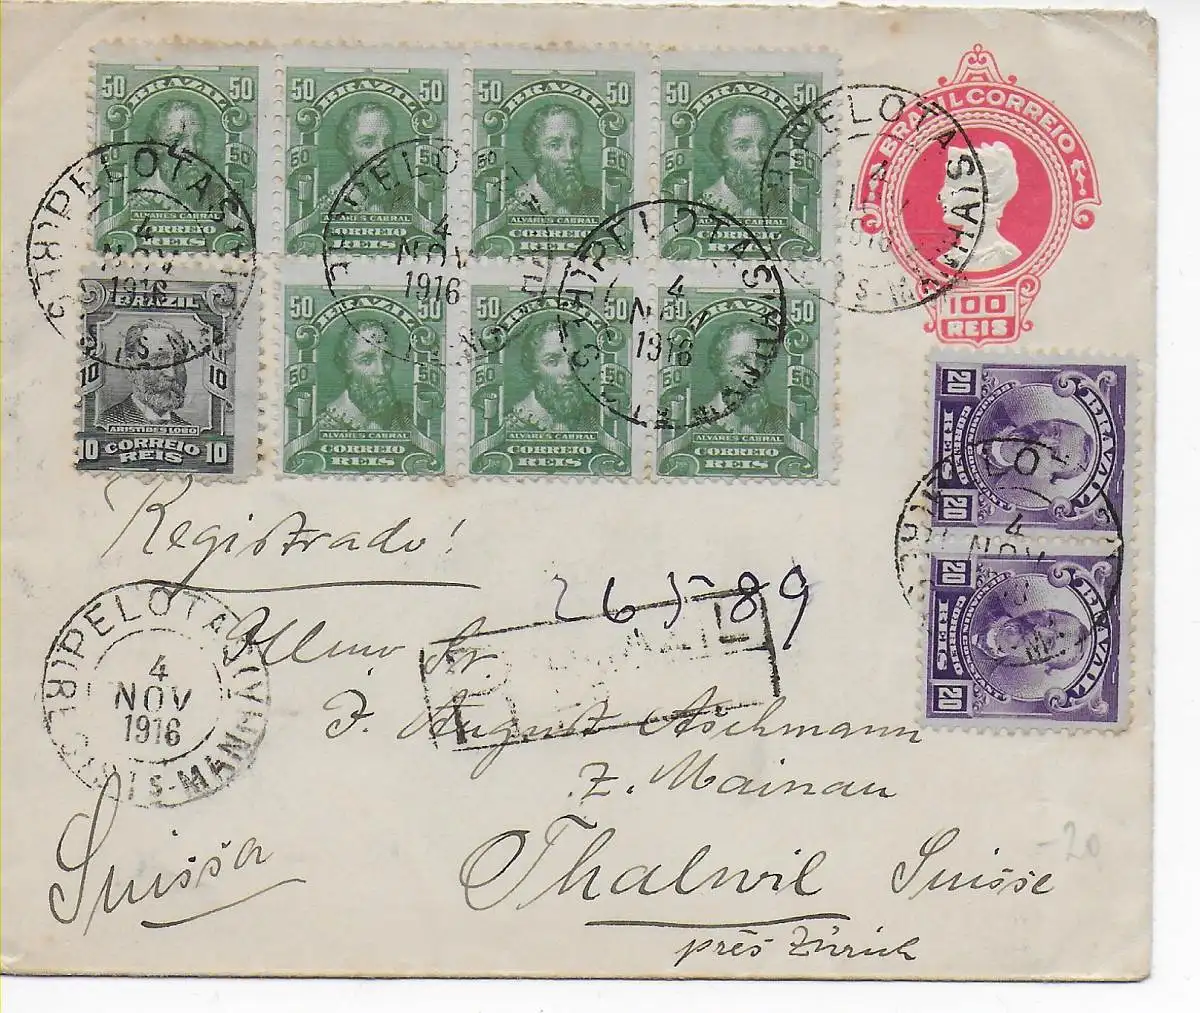 50 BRAZIL 50 50 BRAZIL 50 50 BRAZIL 50 50 BRAZIL 50
50 50 50 50 50 50 50 50
ALVARES CABRAL ALVARES CABRAL ALVARES CABRAL ALVARES CABRAL
CORREIO CORREIO CORREIO CORREIO
REIS REIS REIS REIS
BRAZIL CORREIO
100
REIS
BRAZIL
10 10
ARISTIDES LOBO
10 CORREIO 10
REIS
50 50 50 50 50 50
ALVARES CABRAL ALVARES CABRAL ALVARES CABRAL
CORREIO CORREIO CORREIO
REIS REIS REIS
PELOTAS
4
NOV
1916
PELOTAS
4
NOV
1916
PELOTAS
4
NOV
1916
PELOTAS
4
1916
20 REIS 20
CORREIO
BRAZIL
4
NOV
20 REIS 20
CORREIO
BRAZIL
Registrado!
26589
PELOTAS
4
NOV
1916
Illmo Sr.
J. August Aschmann
z. Mainau
Suissa
Thalwil Suisse
près Zürich
-20